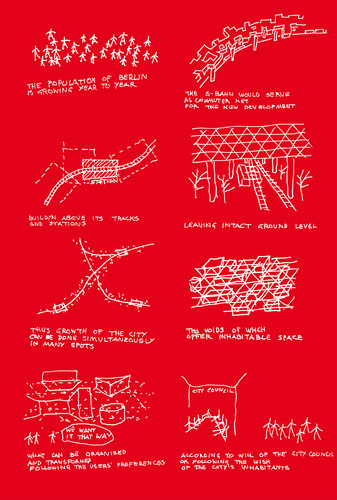 THE POPULATION OF BERLIN
IS GROWING YEAR TO YEAR
THE S-BAHN WOULD SERVE
AS COMMUTER NET
FOR THE NEW DEVELOPMENT
STATION
BUILDIN ABOVE ITS TRACKS
AND STATIONS
LEAVING INTACT GROUND LEVEL
THUS GROWTH OF THE CITY
CAN BE DONE SIMULTANEOUSLY
IN MANY SPOTS
THE VOIDS OF WHICH
OFFER INHABITABLE SPACE
WE WANT
IT THAT WAY
WHAT CAN BE ORGANIZED
AND TRANSFORMED
FOLLOWING THE USERS' PREFERENCES
CITY COUNCIL
ACCORDING TO WILL OF THE CITY COUNCIL
OR FOLLOWING THE WISH
OF THE CITY'S INHABITANTS